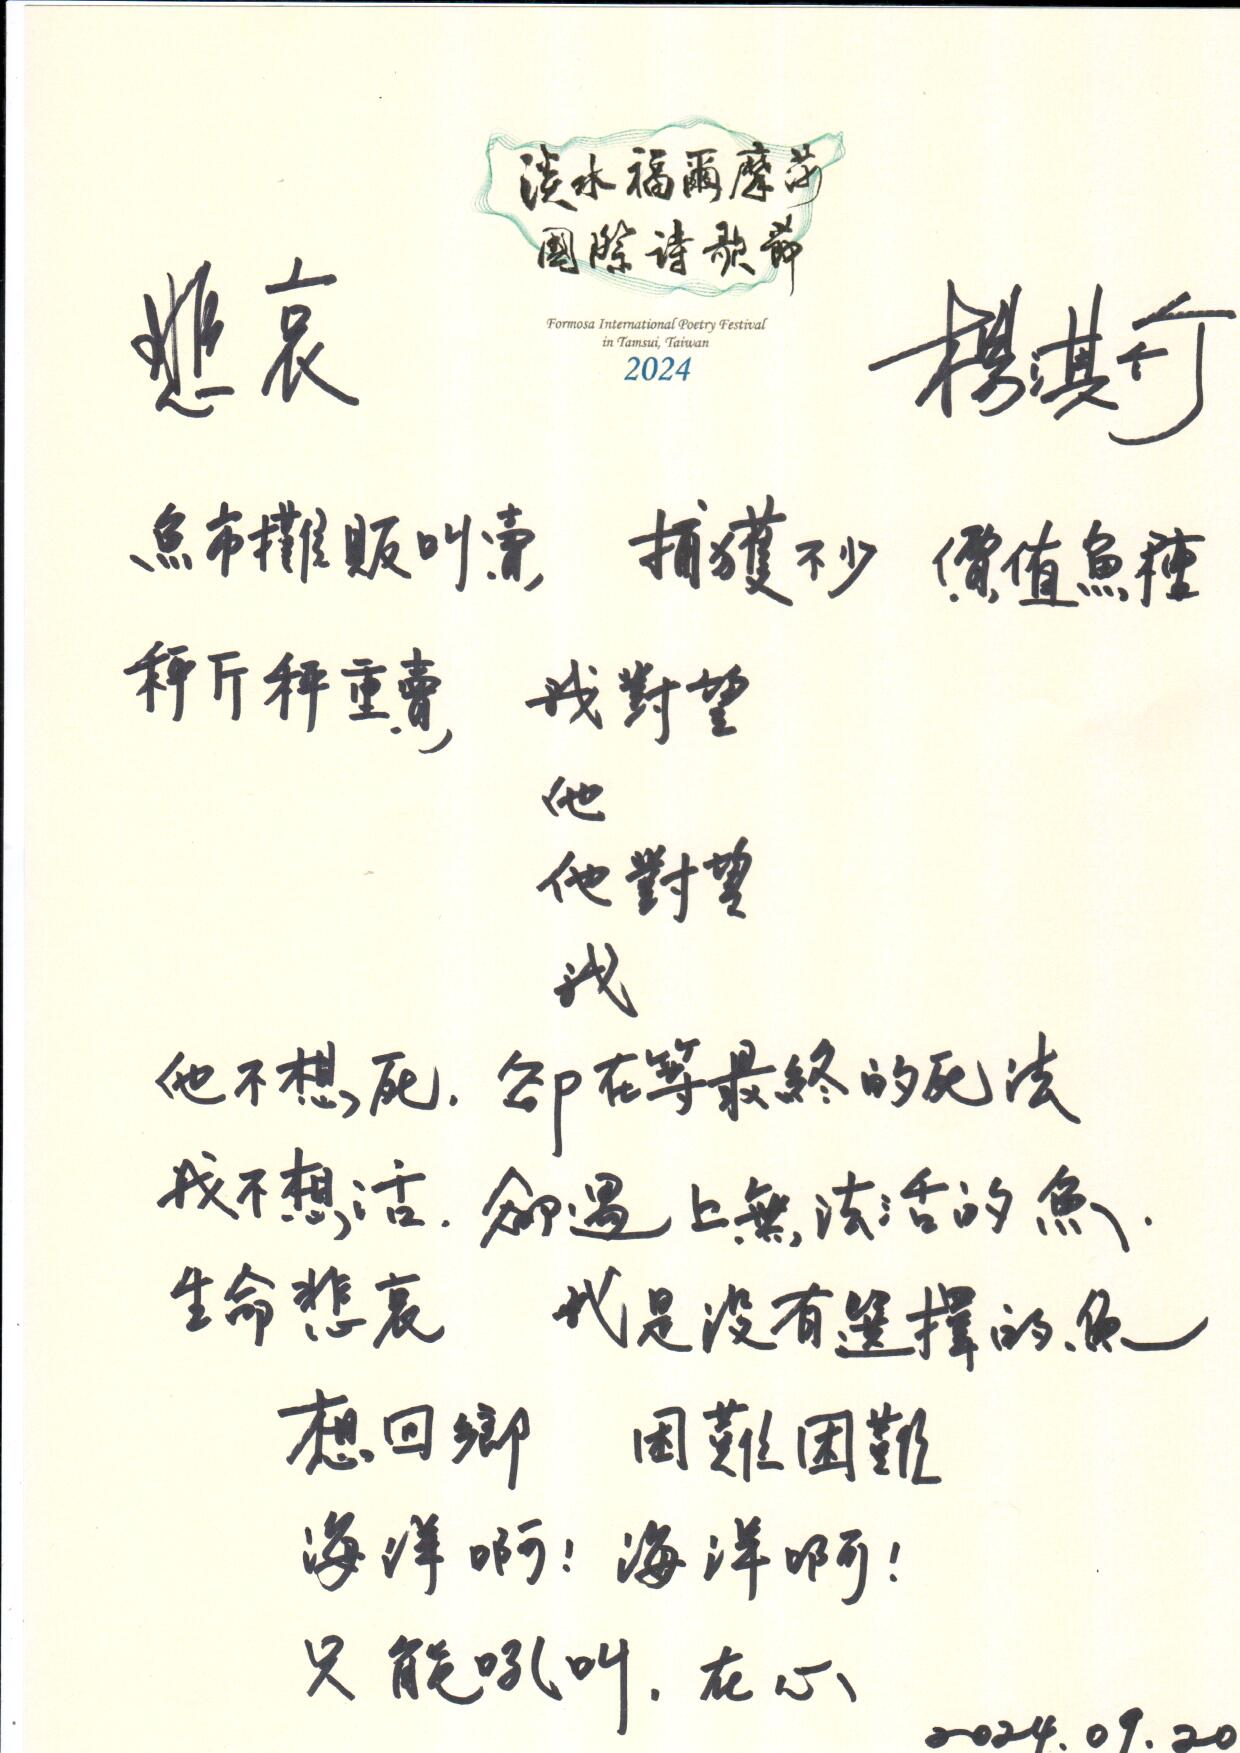 淡水福爾摩莎
國際詩歌節
Formosa International Poetry Festival
in Tamsui, Taiwan
2024
悲哀 楊淇竹
魚市攤販叫賣 捕獲不少 價值魚種
秤斤秤重賣 我對望
他
他對望
我
他不想死. 卻在等最終的死法
我不想活. 卻遇上無法活的魚.
生命悲哀 我是沒有選擇的魚
想回鄉 困難困難
海洋啊! 海洋啊!
只能吼叫. 在心
2024.09.20